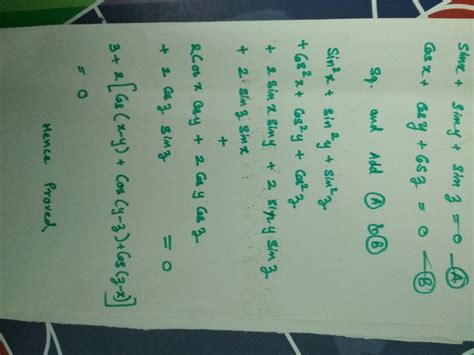 Sinx + Siny + Sin z = 0 —Ⓐ
Cosx + Cosy + Cosz = 0 —Ⓑ
Sq. and Add Ⓐ & Ⓑ
Sin²x + sin²y + sin²z
+ Cos²x + Cos²y + Cos²z
+ 2 Sinx Siny + 2 Siny Sinz
+ 2 Sinz Sinx
+
2Cosx Cosy + 2 Cosy Cosz
+ 2 Cosz Sinz = 0
3 + 2 [Cos(x-y) + Cos(y-z) + Cos(z-x)]
= 0
Hence Proved